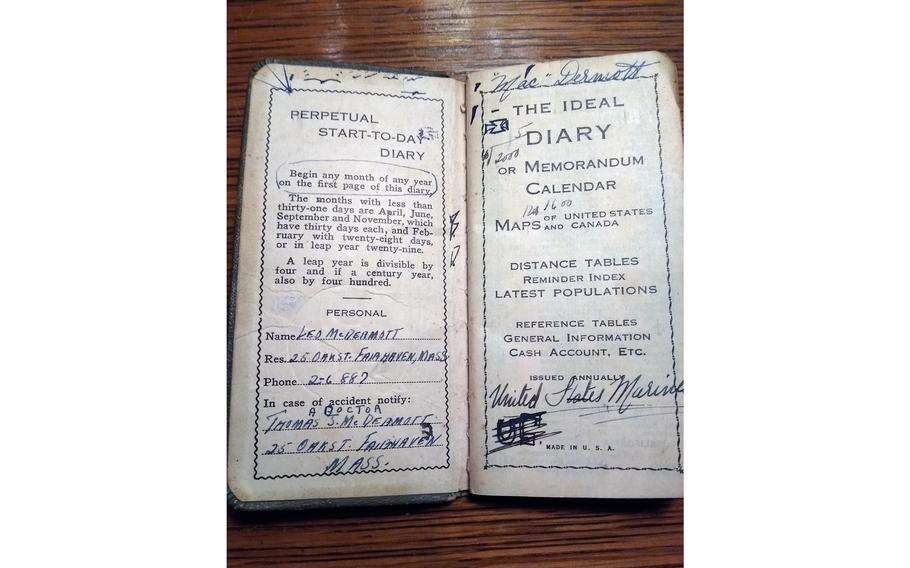 PERPETUAL
START-TO-DAY
DIARY
Begin any month of any year
on the first page of this diary.
The months with less than
thirty-one days are April, June,
September and November, which
have thirty days each, and Feb-
ruary with twenty-eight days,
or in leap year twenty-nine.
A leap year is divisible by
four and if a century year,
also by four hundred.
PERSONAL
Name LEO McDERMOTT
Res. 25 OAK ST. FAIRHAVEN, MASS
Phone 2-6887
In case of accident notify:
A DOCTOR
THOMAS J. McDERMOTT
25 OAK ST. FAIRHAVEN
MASS.
"Mac" Dermott
THE IDEAL
DIARY
2000
OR MEMORANDUM
CALENDAR
1600
MAPS OF UNITED STATES
AND CANADA
DISTANCE TABLES
REMINDER INDEX
LATEST POPULATIONS
REFERENCE TABLES
GENERAL INFORMATION
CASH ACCOUNT, ETC.
ISSUED ANNUALLY
United States Marine
MADE IN U. S. A.